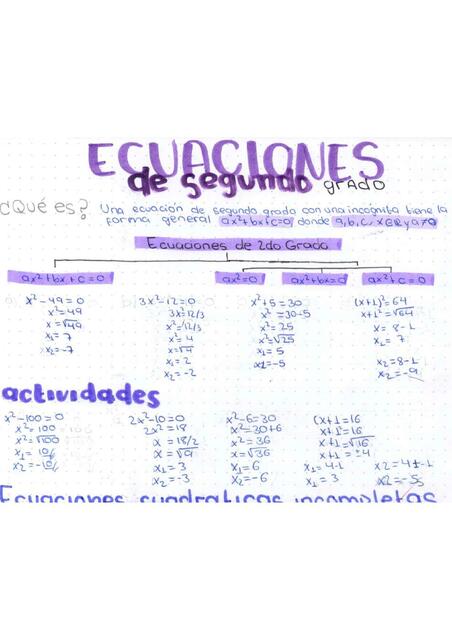 ECUACIONES
de segundo grado
¿Qué es? Una ecuación de segundo grado con una incógnita tiene la
forma general ax²+bx+c=0 donde a,b,c, x∈R y a≠0
Ecuaciones de 2do Grado
ax²+bx+c=0
ax²=0
ax²+bx=0
ax²+c=0
x²-49=0
x²=49
x=√49
x₁=7
x₂=-7
3x²-12=0
3x²=12/3
x²=12/3
x²=4
x=√4
x₁=2
x₂=-2
x²+5=30
x²=30-5
x²=25
x²=√25
x₁=5
x₁=-5
(x+1)²=64
x+1²=√64
x=8-1
x₁=7
x₂=8-1
x₂=-9
actividades
x²-100=0
x²=100
x²=√100
x₁=10
x₂=-10
2x²-10=0
2x²=18
x=18/2
x=√9
x₁=3
x₂=-3
x²-6=30
x²=30+6
x²=36
x=√36
x₁=6
x₂=-6
(x+1=16
x+1²=16
x+1=√16
x+1=±4
x₁=4-1
x₁=3
x₂=4±-1
x₂=-5
Ecuaciones cuadraticas incompletas